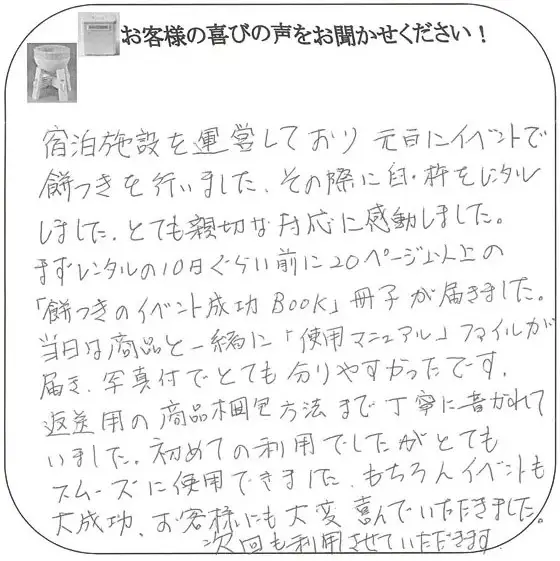 お客様の喜びの声をお聞かせください！
宿泊施設を運営しており 元旦にイベントで
餅つきを行いました、その際に臼・杵をレンタル
しました、とても親切な対応に感動しました。
まずレンタルの10日ぐらい前に20ページ以上の
「餅つきのイベント成功BOOK」冊子が届きました。
当日は商品と一緒に「使用マニュアル」ファイルが
届き、写真付でとても分りやすかったです。
返送用の商品梱包方法まで丁寧に書かれて
いました、初めての利用でしたがとても
スムーズに使用できました、もちろんイベントも
大成功、お客様にも大変喜んでいただきました。
次回も利用させていただきます。